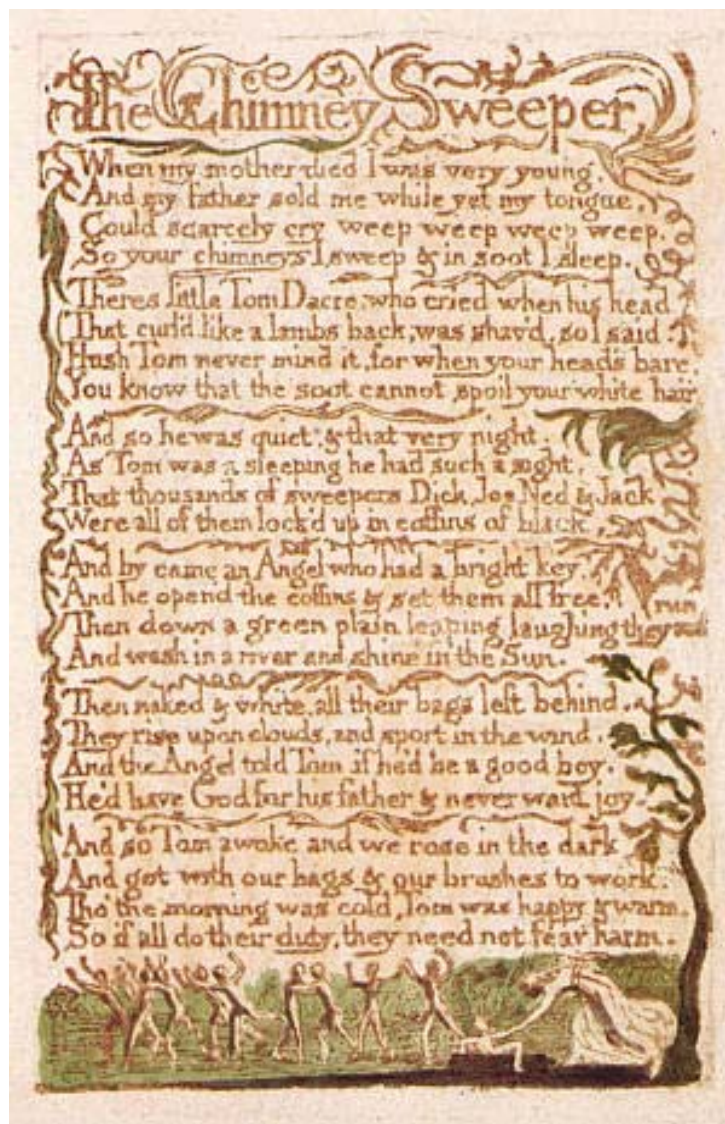 The Chimney Sweeper
When my mother died I was very young,
And my father sold me while yet my tongue,
Could scarcely cry weep weep weep weep.
So your chimneys I sweep & in soot I sleep.
Theres little Tom Dacre, who cried when his head
That curl'd like a lambs back, was shav'd, so I said.
Hush Tom never mind it, for when your head's bare,
You know that the soot cannot spoil your white hair
And so he was quiet, & that very night.
As Tom was a sleeping he had such a sight.
That thousands of sweepers Dick, Joe, Ned & Jack
Were all of them lock'd up in coffins of black,
And by came an Angel who had a bright key,
And he open'd the coffins & set them all free.
Then down a green plain leaping laughing they run
And wash in a river and shine in the Sun.
Then naked & white, all their bags left behind.
They rise upon clouds, and sport in the wind.
And the Angel told Tom if he'd be a good boy,
He'd have God for his father & never want joy.
And so Tom awoke and we rose in the dark
And got with our bags & our brushes to work.
Tho' the morning was cold, Tom was happy & warm.
So if all do their duty, they need not fear harm.